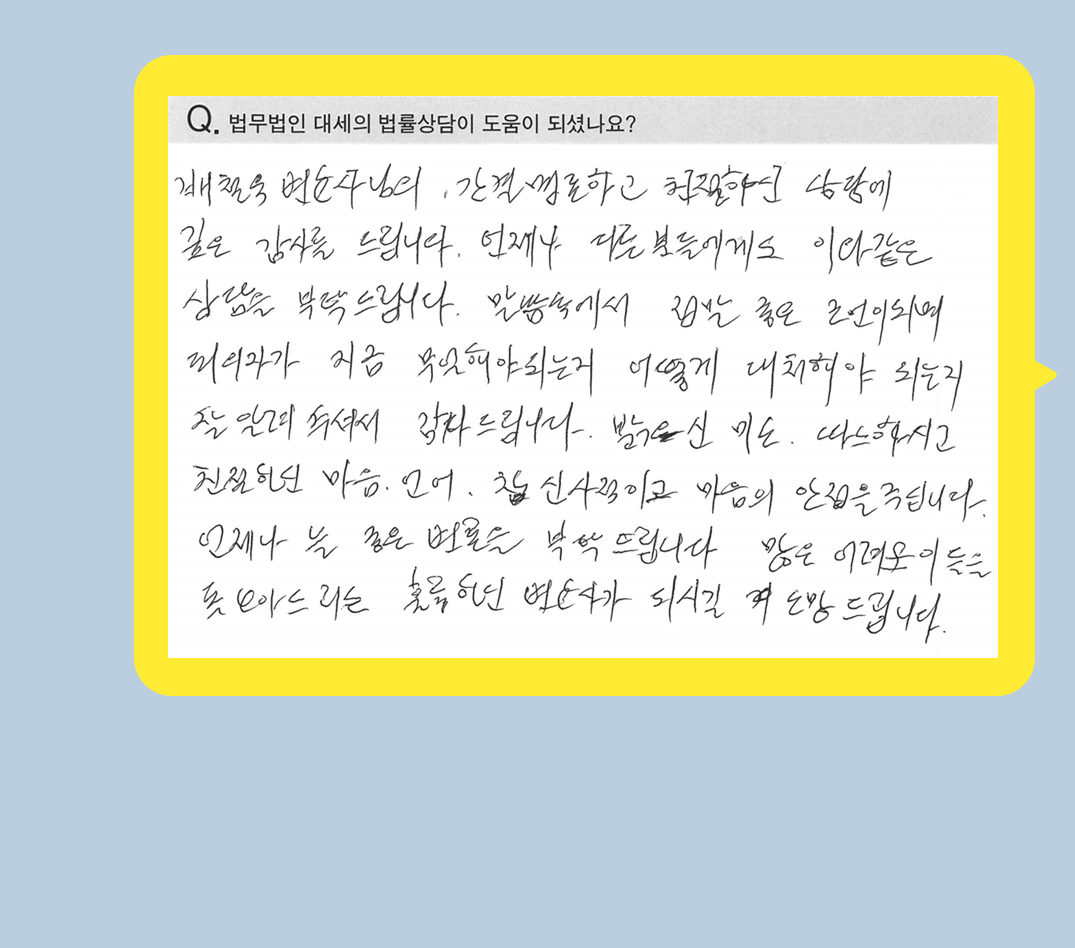 Q. 법무법인 대세의 법률상담이 도움이 되셨나요?
변호사님의, 간결·명료하고 친절하신 상담에
깊은 감사를 드립니다. 언제나 다른 분들에게도 이와같은
상담을 부탁드립니다. 말씀속에서 좋은 조언이되며
피의자가 지금 무엇해야되는지 어떻게 대처해야 되는지
잘 알려 주셔서 감사드립니다. 밝으신 미소. 따스하시고
친절하신 마음. 언어. 참 신사적이고 마음의 안정을 주십니다.
언제나 늘 좋은 변론을 부탁드립니다 많은 어려운이들을
도와드리는 훌륭하신 변호사가 되시길 소망드립니다.